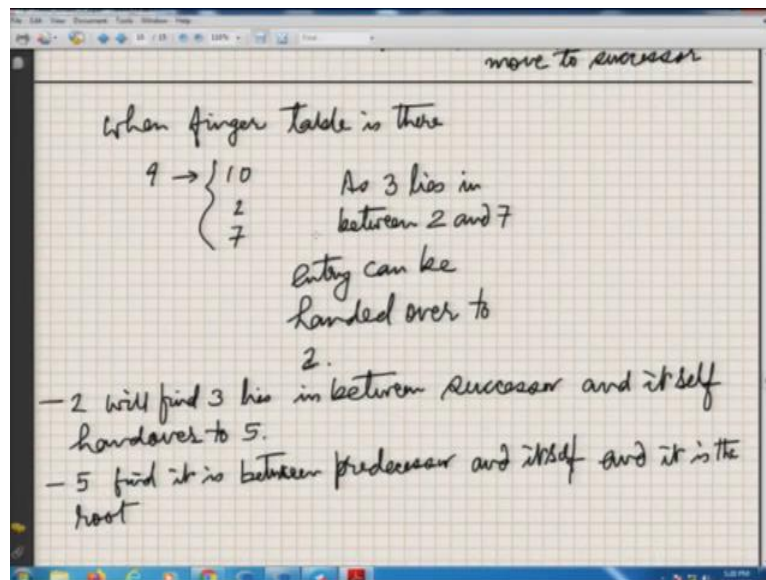 File Edit View Document Tools Window Help
move to successor
when finger table is there
9 → { 10
2
7
As 3 lies in
between 2 and 7
entry can be
handed over to
2.
- 2 will find 3 lies in between successor and itself
handover to 5.
- 5 find it is between predecessor and itself and it is the
root